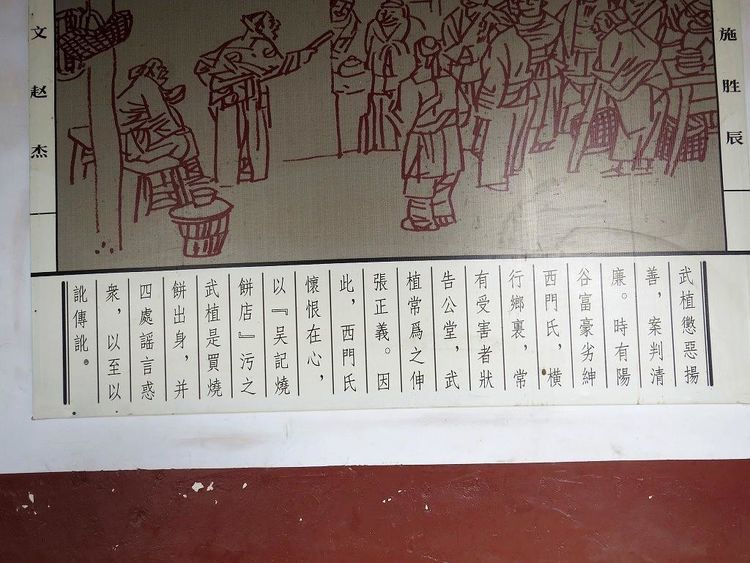 施胜辰
文赵杰
武植懲惡揚
善，案判清
廉。時有陽
谷富豪劣紳
西門氏，橫
行鄉裏，常
有受害者狀
告公堂，武
植常爲之伸
張正義。因
此，西門氏
懷恨在心，
以『吴記燒
餅店』污之
武植是買燒
餅出身，并
四處謡言惑
衆，以至以
訛傳訛。